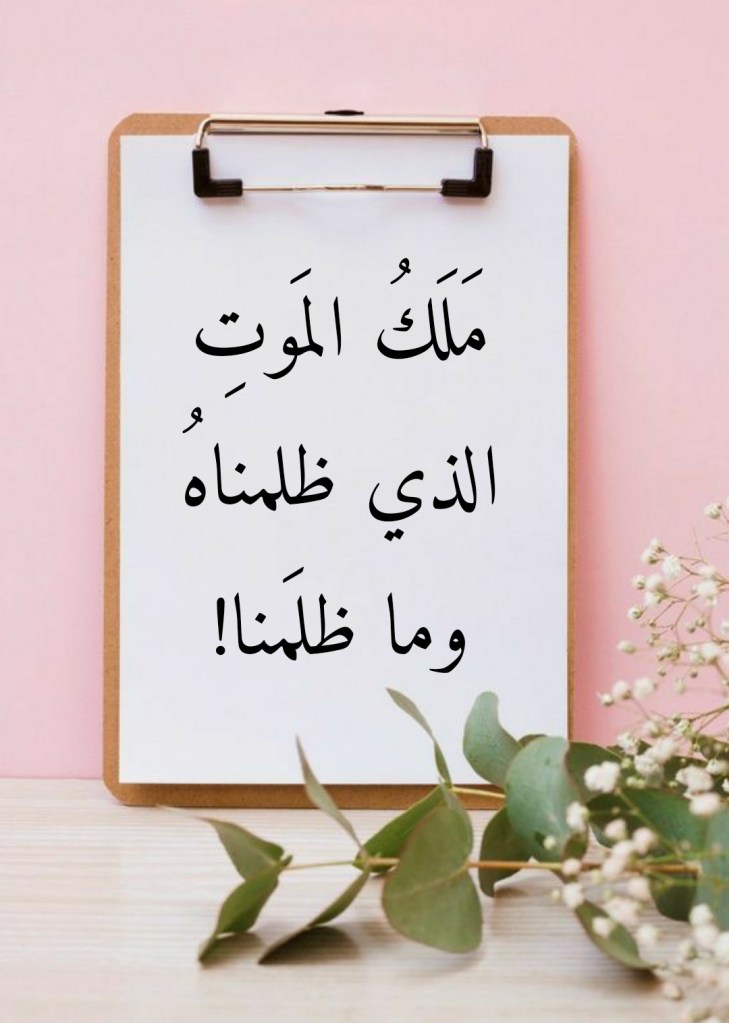 مَلَكُ المَوتِ
الذي ظلمناهُ
وما ظلَمنا!